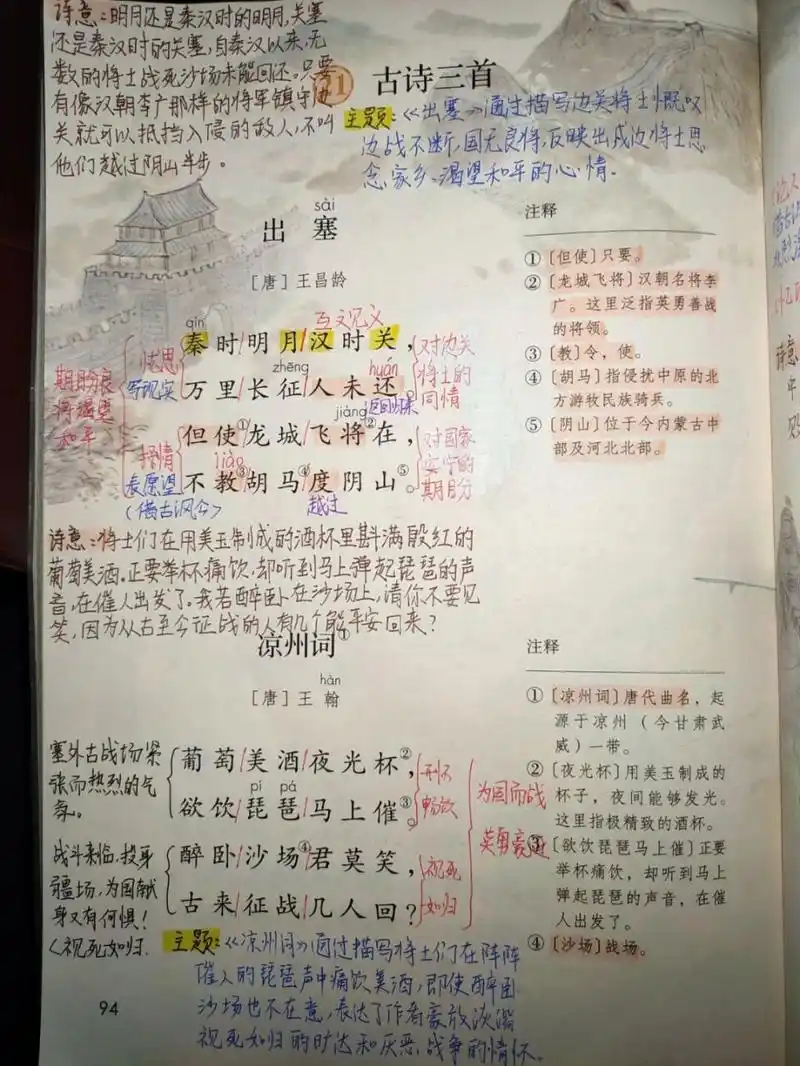 诗意：明月还是秦汉时的明月，关塞
还是秦汉时的关塞，自秦汉以来，无
数的将士战死沙场未能回还。只要
有像汉朝李广那样的将军镇守边
关就可以抵挡入侵的敌人，不叫
他们越过阴山半步。
21 古诗三首
主题：《出塞》通过描写边关将士慨叹
边战不断，国无良将，反映出戍边将士思
念家乡、渴望和平的心情.
sài
出塞
[唐]王昌龄
qín
互文见义
秦时/明月/汉时关，
zhēng huán
万里/长征/人未还。
返回归来
jiàng
但使①/龙城/飞将②在，
jiào
不教③胡马④/度阴山⑤。
越过
期盼良
将渴望
和平
怀思
写现实
抒情
表愿望
(借古讽今)
对边关
将士的
同情
对国家
安宁的
期盼
注释
①〔但使〕只要。
②〔龙城飞将〕汉朝名将李
广。这里泛指英勇善战
的将领。
③〔教〕令，使。
④〔胡马〕指侵扰中原的北
方游牧民族骑兵。
⑤〔阴山〕位于今内蒙古中
部及河北北部。
诗意：将士们在用美玉制成的酒杯里斟满殷红的
葡萄美酒.正要举杯痛饮,却听到马上弹起琵琶的声
音,在催人出发了。我若醉卧在沙场上,请你不要见
笑,因为从古至今征战的人有几个能平安回来?
凉州词①
hàn
[唐]王翰
葡萄/美酒/夜光杯②，
pí pá
欲饮/琵琶/马上催③。
醉卧/沙场④/君莫笑，
古来/征战/几人回？
塞外古战场紧
张而热烈的气
氛。
战斗来临,投身
疆场,为国献
身又有何惧!
(视死如归.
开怀
畅饮
视死
如归
为国而战
英勇豪迈
注释
①〔凉州词〕唐代曲名，起
源于凉州（今甘肃武
威）一带。
②〔夜光杯〕用美玉制成的
杯子，夜间能够发光。
这里指极精致的酒杯。
③〔欲饮琵琶马上催〕正要
举杯痛饮，却听到马上
弹起琵琶的声音，在催
人出发了。
④〔沙场〕战场。
主题：《凉州词》通过描写将士们在阵阵
催人的琵琶声中痛饮美酒，即使醉卧
沙场也不在意，表达了作者豪放
视死如归的旷达和厌恶战争的情怀。
94